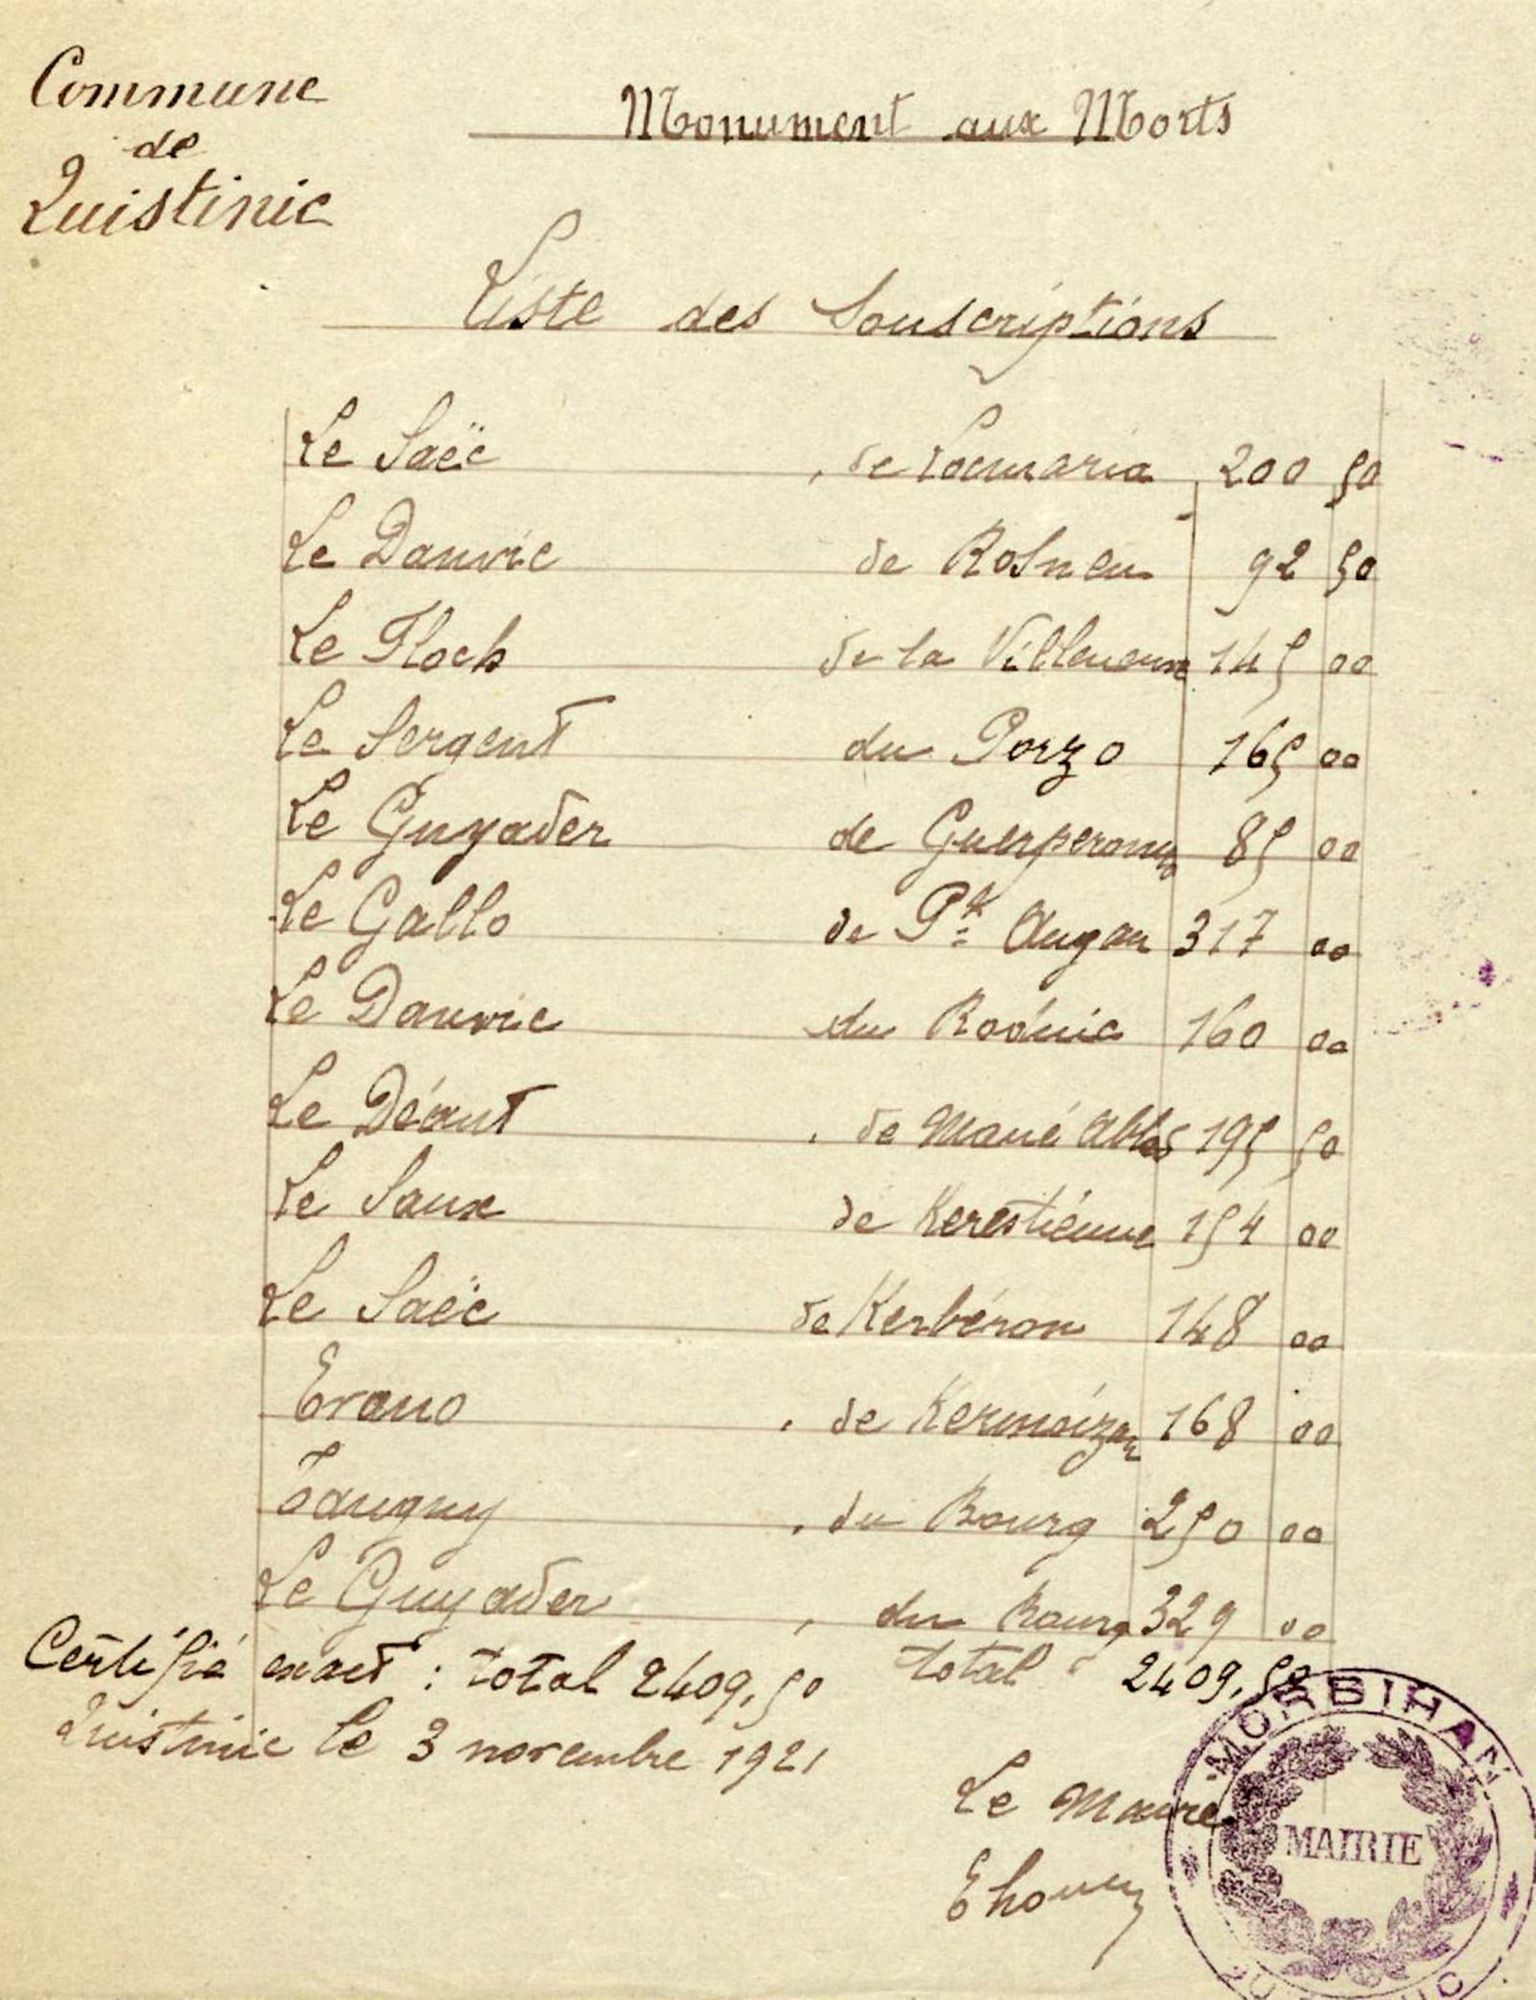 Commune
de
Quistinic
Monument aux Morts
Liste des Souscriptions
Le Saëc , de Locmaria 200 50
Le Danvic de Rosneu 92 50
Le Floch de la Villeneuve 145 00
Le Sergent du Porzo 165 00
Le Guyader de 85 00
Le Gallo de Pk Augan 317 00
Le Danvic du Roduic 160 00
Le Déaut , de Mané 195 50
Le Saux de Kerestienne 154 00
Le Saëc de Kerbéron 148 00
Evano , de Kermoizan 168 00
Tanguy , du Bourg 250 00
Le Guyader , du Bourg 329 00
Certifié exact : total 2409,50 total 2409,50
Quistinic le 3 novembre 1921
Le Maire
MORBIHAN
MAIRIE